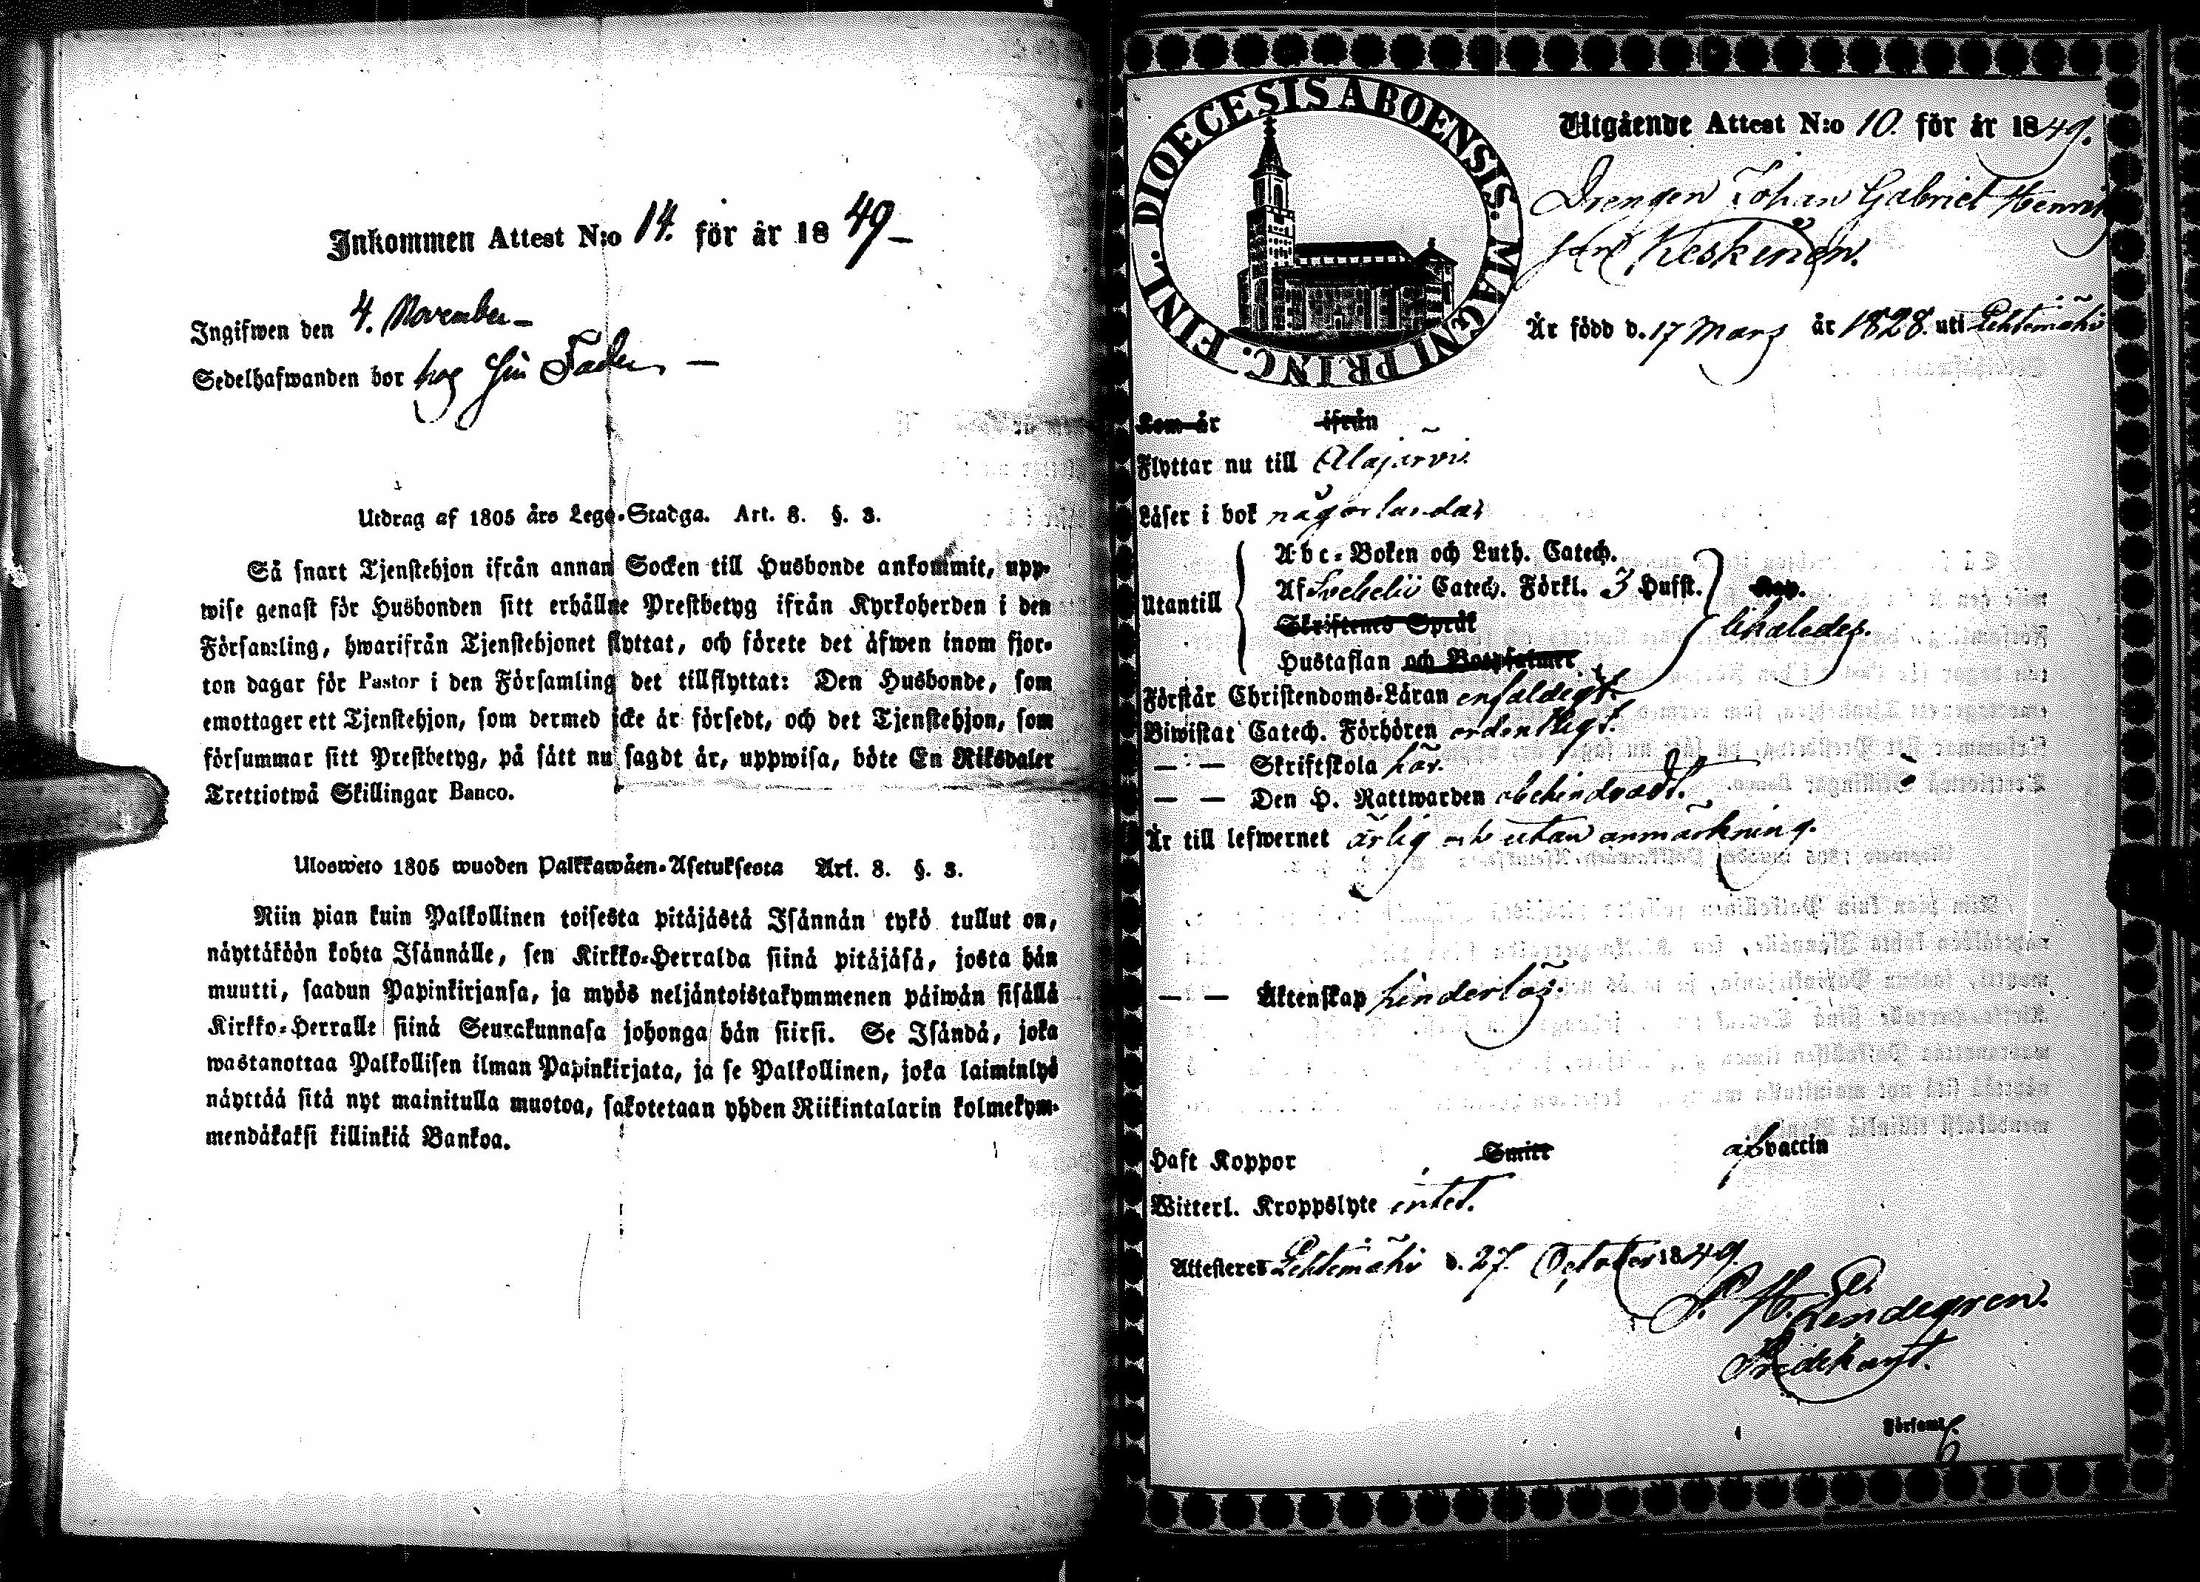 Inkommen Attest N:o 14. för år 1849 –
Ingifwen den 4. November –
Sedelhafwanden bor hos sin Fader –
Utdrag af 1805 års Lego-Stadga. Art. 8. §. 3.
Så snart Tjenstehjon ifrån annan Socken till Husbonde ankommit, upp-
wise genast för Husbonden sitt erhållne Prestbetyg ifrån Kyrkoherden i den
Församling, hwarifrån Tjenstehjonet flyttat, och förete det äfwen inom fjor-
ton dagar för Pastor i den Församling det tillflyttat: Den Husbonde, som
emottager ett Tjenstehjon, som dermed icke är försedt, och det Tjenstehjon, som
försummar sitt Prestbetyg, på sätt nu sagdt är, uppwisa, böte En Riksdaler
Trettiotwå Skillingar Banco.
Ulosweto 1805 wuoden Palkkawäen-Asetuksesta Art. 8. §. 3.
Niin pian kuin Palkollinen toisesta pitäjästä Isännän tykö tullut on,
näyttäköön kohta Isännälle, sen Kirkko-Herralda siinä pitäjäsä, josta hän
muutti, saadun Papinkirjansa, ja myös neljäntoistakymmenen päiwän sisällä
Kirkko-Herralle siinä Seurakunnasa johonga hän siirsi. Se Isändä, joka
wastanottaa Palkollisen ilman Papinkirjata, ja se Palkollinen, joka laiminlyö
näyttää sitä nyt mainitulla muotoa, sakotetaan yhden Riikintalarin kolmekym-
mendäkaksi killinkiä Bankoa.
DIOECESIS ABOENSIS. MAGNI PRINC. FINL.
Utgående Attest N:o 10. för år 1849.
Drengen Johan Gabriel Henriks
son Keskinen.
Är född d. 17 Mars år 1828. uti Lehtimäki
Kom år ifrån
Flyttar nu till Alajärvi.
Läser i bok någorlunda,
Utantill
Abc-Boken och Luth. Catech.
Af Svebelii Catech. Förkl. 3 Hufst.
Skriftenes Språk
Hustaflan och Botpsalmer
Kap.
likaledes.
Förstår Christendoms-Läran enfaldigt.
Biwistat Catech. Förhören ordentligt.
— — Skriftskola här.
— — Den H. Nattwarden obehindradt.
Är till lefwernet ärlig och utan anmärkning.
— — Äktenskap hinderlös.
Haft Koppor Smitt af vaccin
Witterl. Kroppslyte intet.
Attesteres Lehtimäki d. 27. October 1849.
Lindegren.
Predikant.
Församl.